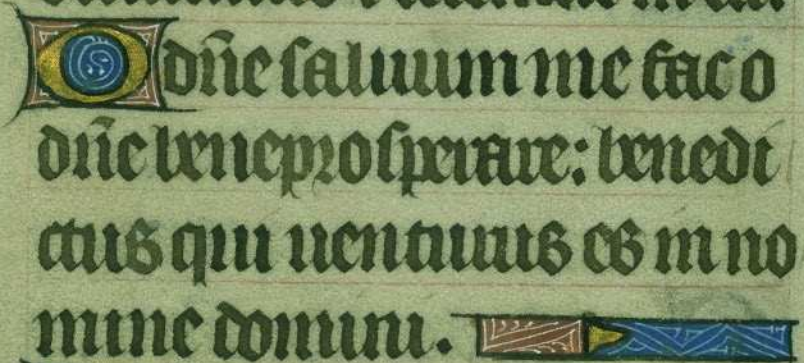 O dñe saluum me fac o
dñe bene prosperare: benedi
ctus qui uenturus es in no
mine domini.